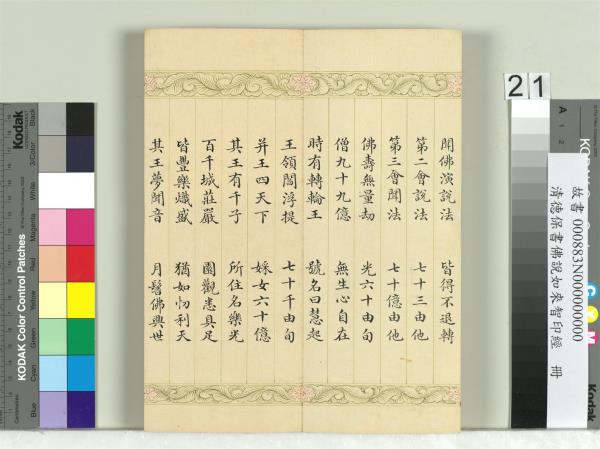 聞佛演說法　皆得不退轉
第二會說法　七十三由他
第三會聞法　七十億由他
佛壽無量劫　光六十由旬
僧九十九億　無生心自在
時有轉輪王　號名曰慧起
王領閻浮提　七十千由旬
并王四天下　婇女六十億
其王有千子　所住名樂光
百千城莊嚴　園觀悉具足
皆豐樂熾盛　猶如忉利天
其王夢聞音　月髻佛興世
21
故書 000883N000000000
清德保書佛說如來智印經 冊
Kodak
KODAK Color Control Patches
Black
3/Color
White
Magenta
Red
Yellow
Green
Cyan
Blue
Kodak
A 1 2
C Y M